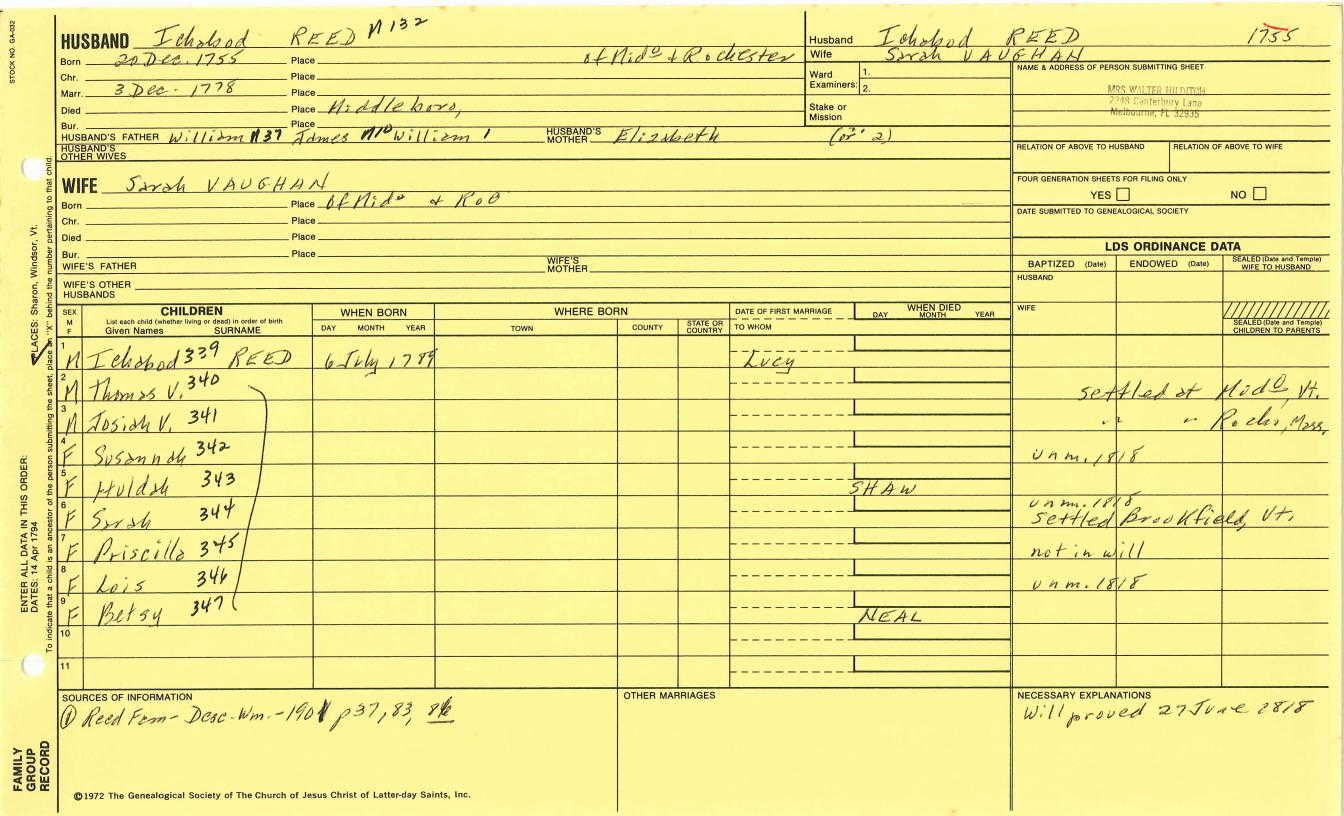 STOCK NO. GA-032
HUSBAND Ichabod REED #132
Born 20 Dec. 1755 Place of Mido & Rochester
Chr. Place
Marr. 3 Dec. 1778 Place
Died Place Middleboro,
Bur. Place
HUSBAND'S FATHER William #37 James #10 William 1 HUSBAND'S MOTHER Elizabeth (or 2)
HUSBAND'S OTHER WIVES
Husband Ichabod REED 1755
Wife Sarah VAUGHAN
Ward Examiners: 1.
2.
Stake or Mission
NAME & ADDRESS OF PERSON SUBMITTING SHEET
MRS WALTER HILDITCH
2248 Canterbury Lane
Melbourne, FL 32935
RELATION OF ABOVE TO HUSBAND RELATION OF ABOVE TO WIFE
FOUR GENERATION SHEETS FOR FILING ONLY
YES NO
DATE SUBMITTED TO GENEALOGICAL SOCIETY
WIFE Sarah VAUGHAN
Born Place of Mido & Roo
Chr. Place
Died Place
Bur. Place
WIFE'S FATHER WIFE'S MOTHER
WIFE'S OTHER HUSBANDS
LDS ORDINANCE DATA
BAPTIZED (Date) ENDOWED (Date) SEALED (Date and Temple) WIFE TO HUSBAND
HUSBAND
WIFE
SEALED (Date and Temple) CHILDREN TO PARENTS
SEX M F CHILDREN List each child (whether living or dead) in order of birth Given Names SURNAME WHEN BORN DAY MONTH YEAR WHERE BORN TOWN COUNTY STATE OR COUNTRY DATE OF FIRST MARRIAGE TO WHOM WHEN DIED DAY MONTH YEAR
1 M Ichabod 339 REED 6 July 1789 Lucy
2 M Thomas V. 340 settled at Mido, Vt.
3 M Josiah V. 341 " " Roch, Mass.
4 F Susannah 342 unm. 1818
5 F Huldah 343 SHAW
6 F Sarah 344 unm. 1818 settled Brookfield, Vt.
7 F Priscilla 345 not in will
8 F Lois 346 unm. 1818
9 F Betsy 347 NEAL
10
11
SOURCES OF INFORMATION
① Reed Fam - Desc. Wm. - 1901 p 37, 83, 86
OTHER MARRIAGES
NECESSARY EXPLANATIONS
Will proved 27 June 1818
©1972 The Genealogical Society of The Church of Jesus Christ of Latter-day Saints, Inc.
FAMILY GROUP RECORD
ENTER ALL DATA IN THIS ORDER:
DATES: 14 Apr 1794
PLACES: Sharon, Windsor, Vt.
To indicate that a child is an ancestor of the person submitting the sheet, place an "X" behind the number pertaining to that child.